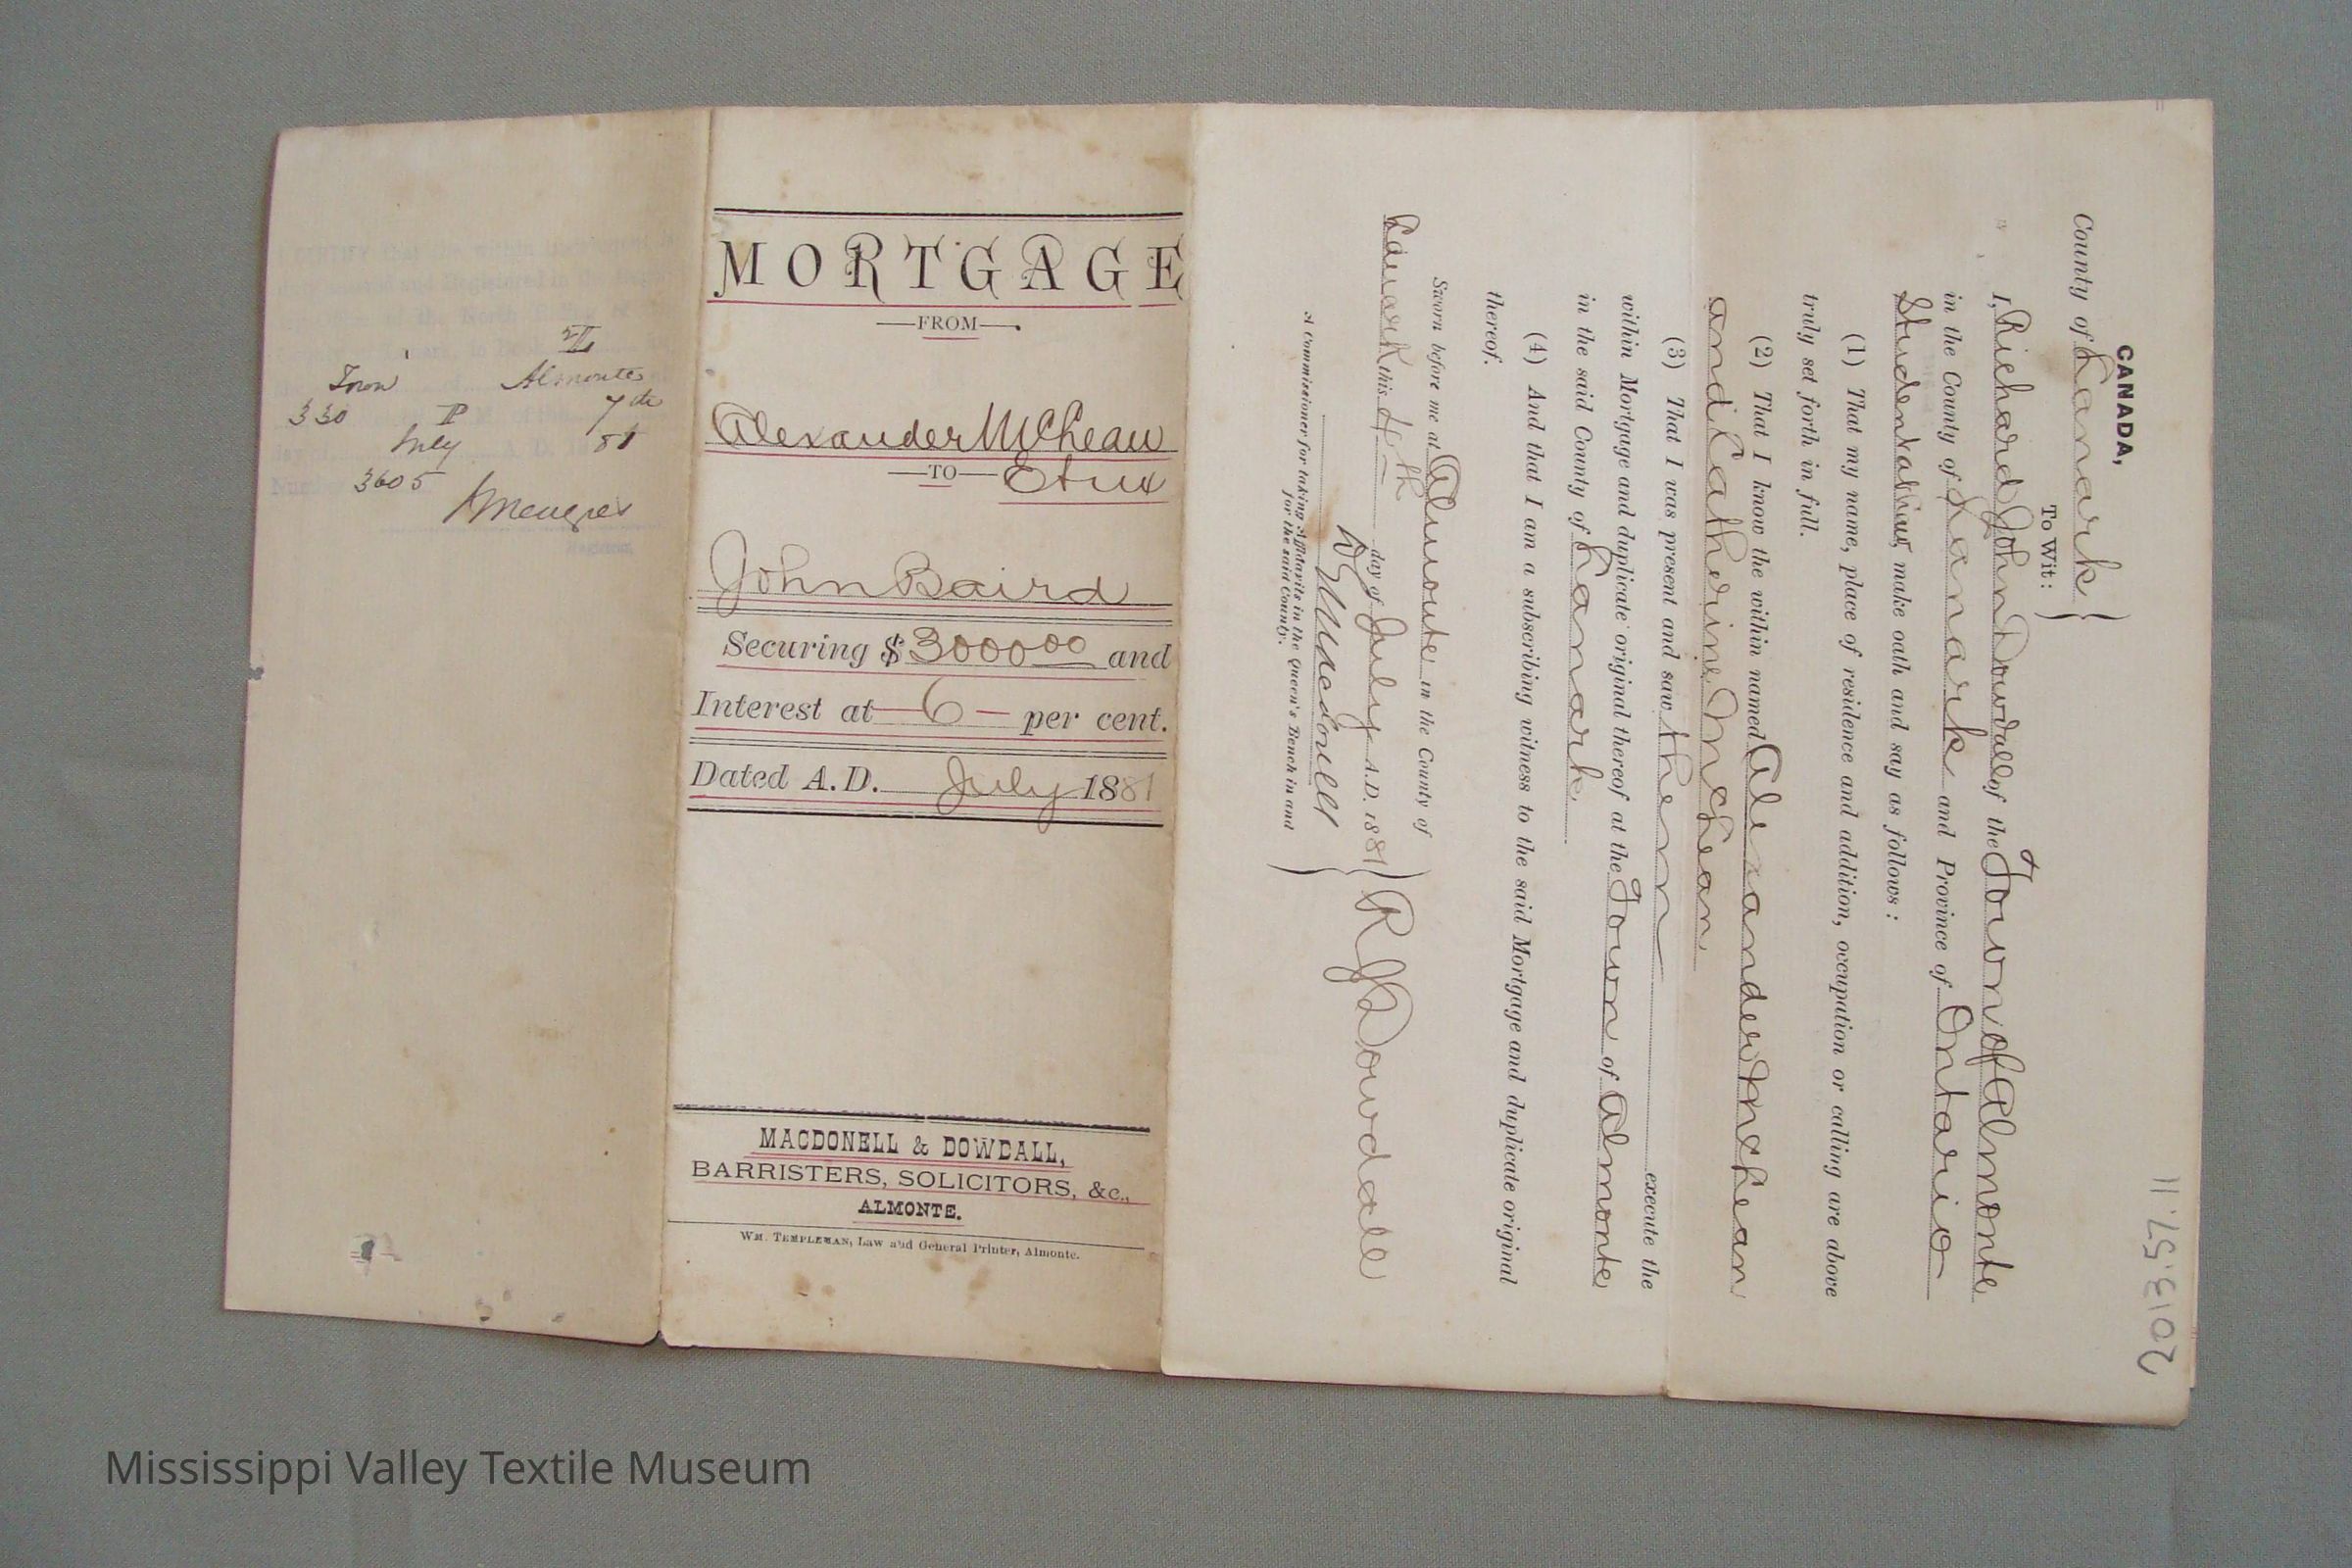 II
Town Almonte
330 P 7th
July 81
3605
MORTGAGE
FROM
Alexander McLean
TO Et ux
John Baird
Securing $3000 00 and
Interest at 6 per cent.
Dated A.D. July 1881
MACDONELL & DOWDALL,
BARRISTERS, SOLICITORS, &c.,
ALMONTE.
WM. TEMPLEMAN, Law and General Printer, Almonte.
CANADA,
County of Lanark }
To Wit:
I, Richard John Dowdall of the Town of Almonte
in the County of Lanark and Province of Ontario
Student at Law, make oath and say as follows:
(1) That my name, place of residence and addition, occupation or calling are above
truly set forth in full.
(2) That I know the within named Alexander McLean
and Catherine McLean
(3) That I was present and saw them execute the
within Mortgage and duplicate original thereof at the Town of Almonte
in the said County of Lanark.
(4) And that I am a subscribing witness to the said Mortgage and duplicate original
thereof.
Sworn before me at Almonte in the County of
Lanark this 4th day of July A.D. 1881 } R J Dowdall
Macdonell
A Commissioner for taking Affidavits in the Queen's Bench in and
for the said County.
2013.57.11
Mississippi Valley Textile Museum